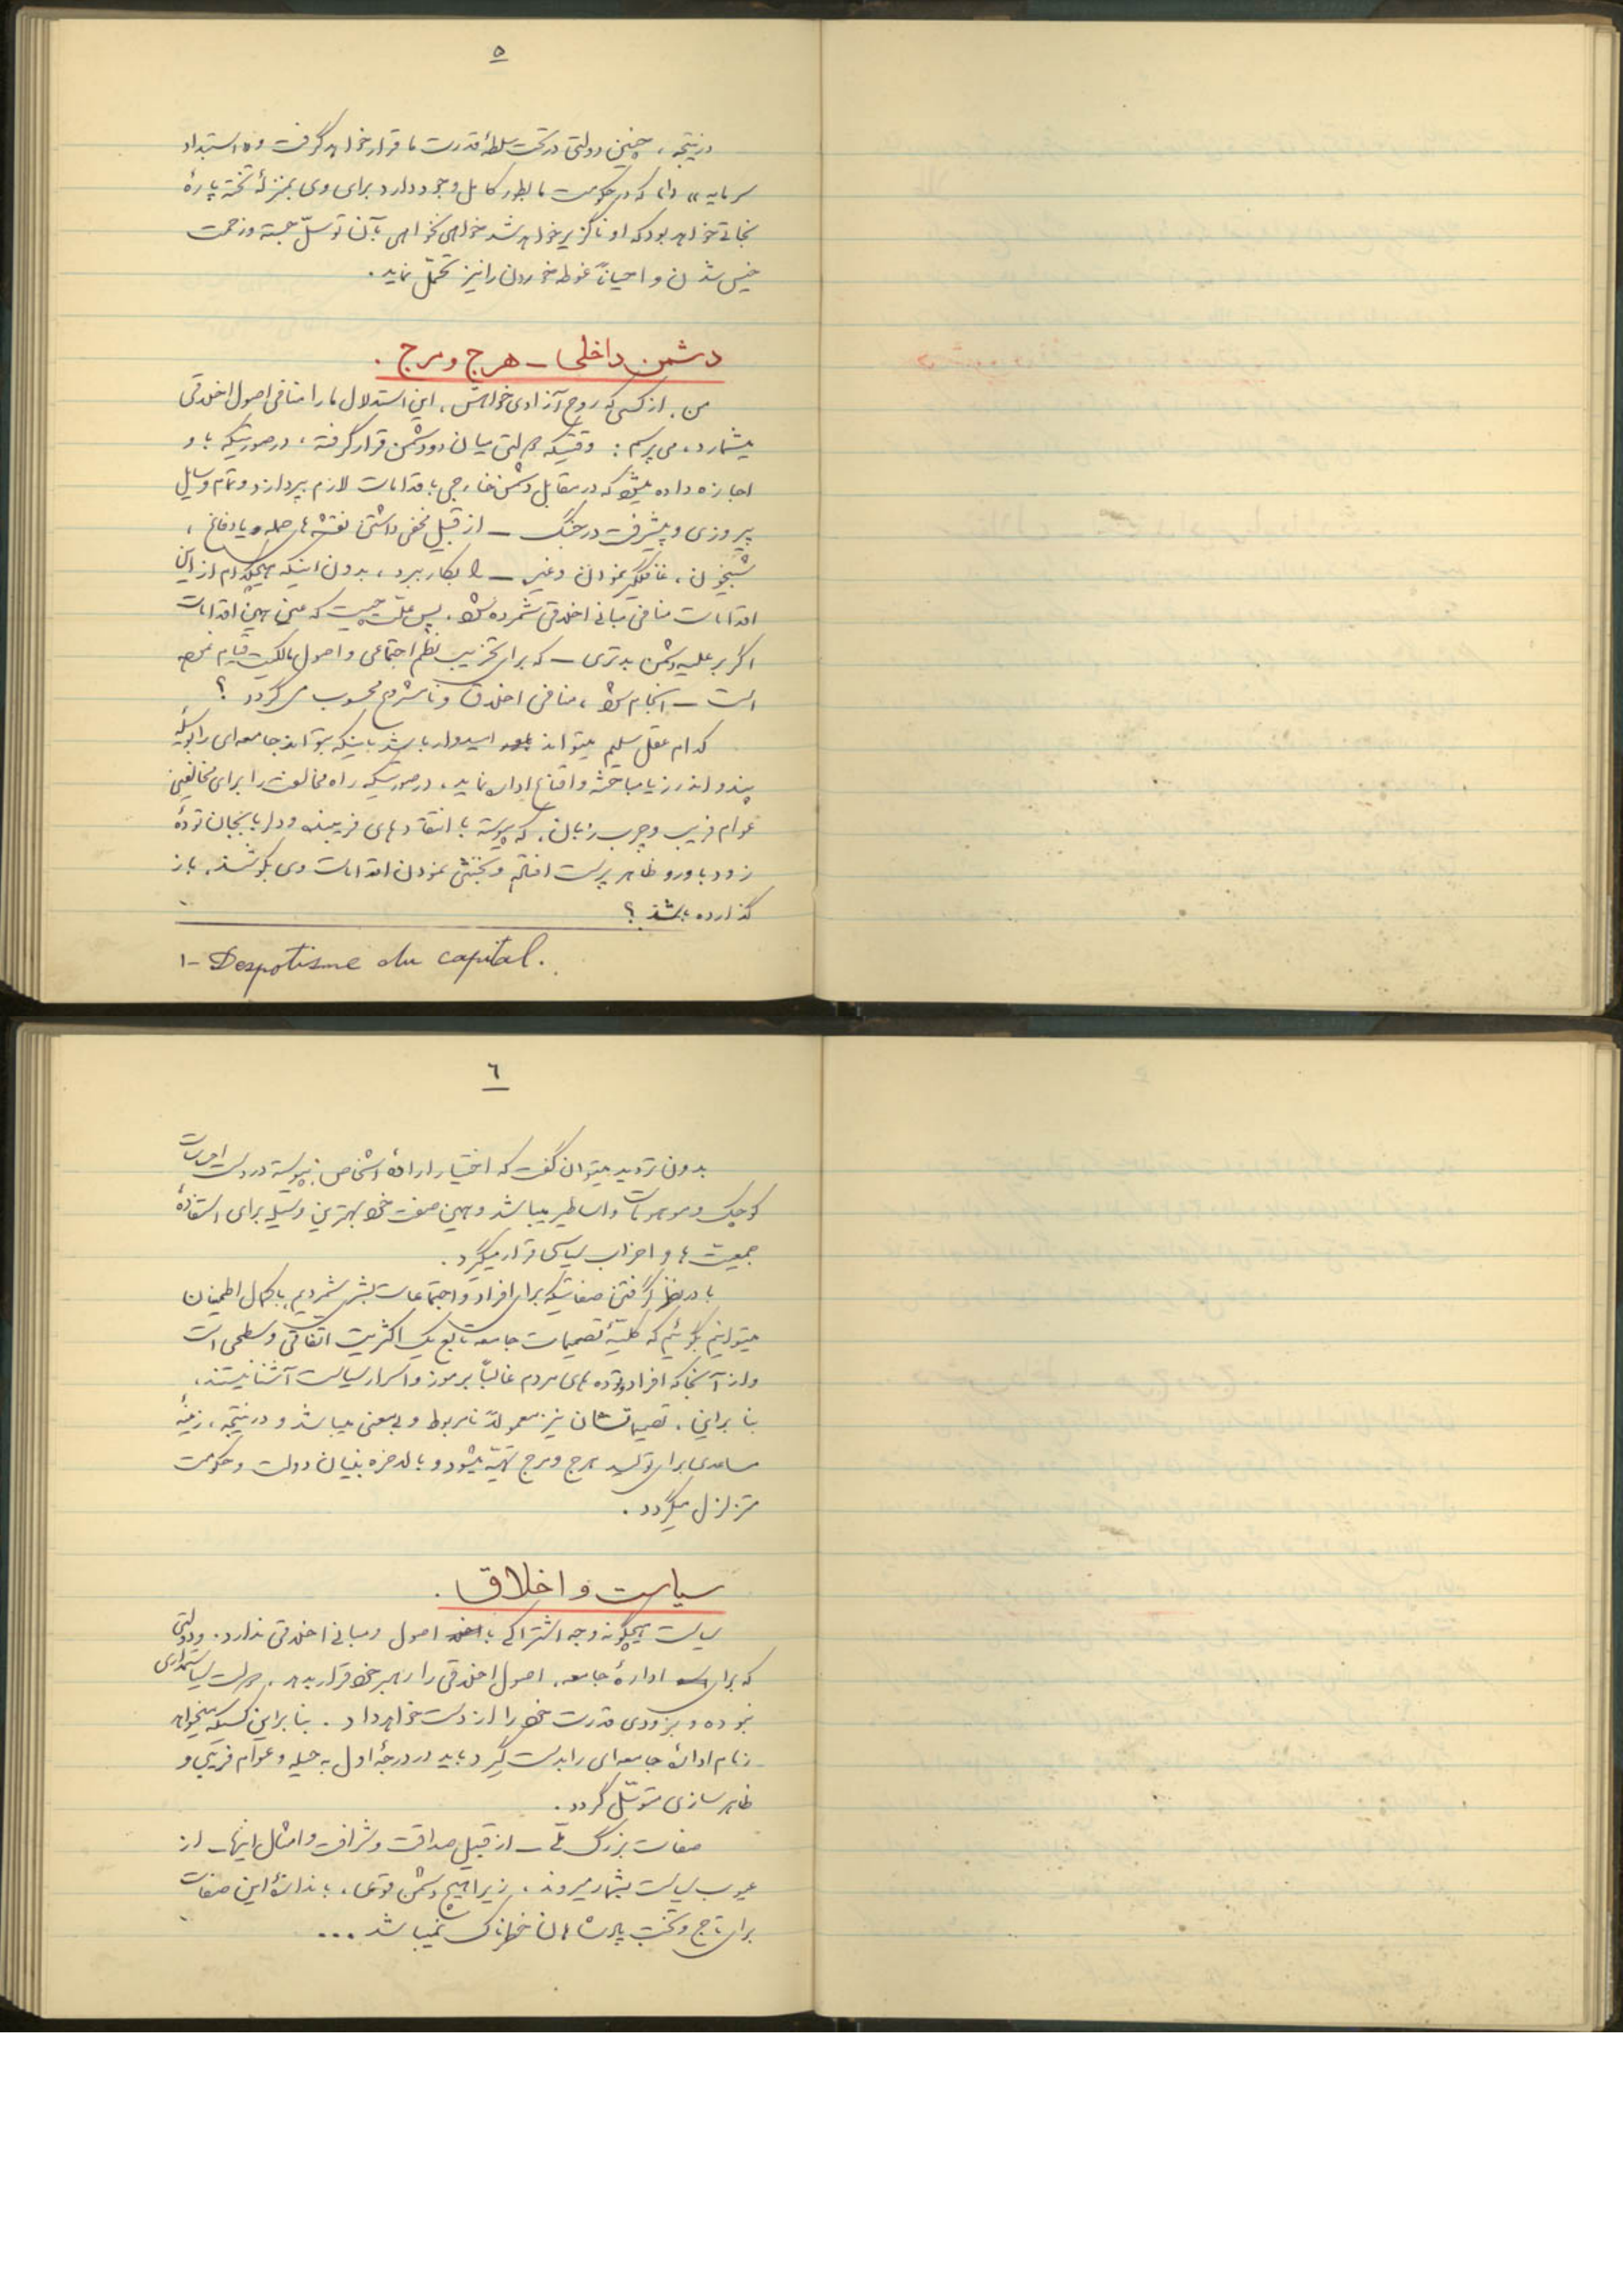 ۵
در نتیجه، چنین دولتی در تحت سلطهٔ قدرت ما قرار خواهد گرفت و «استبداد
سرمایه» را، که در حکومت ما بطور کامل وجود دارد برای وی بمنزلهٔ تخته پارهٔ
نجاتی خواهد بود که او ناگزیر خواهد شد خواهی نخواهی بآن توسّل جسته و زحمت
خیس شدن و احیاناً غوطه خوردن را نیز تحمّل نماید.
دشمن داخلی ـ هرج و مرج.
من، از کسی که روح آزادی خواهش، این استدلال ما را منافی اصول اخلاقی
میشمارد، می پرسم: وقتیکه دولتی میان دو دشمن قرار گرفته، در صورتیکه باو
اجازه داده میشود که در مقابل دشمن خارجی باقدامات لازم بپردازد و تمام وسایل
پیروزی و پیشرفت در جنگ ـ از قبیل مخفی داشتن نقشه های حمله و یا دفاع،
شبیخون، غافلگیر نمودن و غیره ـ را بکار ببرد، بدون اینکه هیچکدام از این
اقدامات منافی مبانی اخلاقی شمرده شود. پس علّت چیست که عین همین اقدامات
اگر بر علیه دشمن بدتری ـ که برای تخریب نظم اجتماعی و اصول مالکیت قیام نموده
است ـ انجام شود، منافی اخلاق و نامشروع محسوب می گردد؟
کدام عقل سلیم میتواند امیدوار باشد باینکه بتواند جامعه ای را بوسیلهٔ
پند و اندرز یا مباحثه و اقناع اداره نماید، در صورتیکه راه مخالفت را برای مخالفین
عوام فریب و چرب زبان، که پیوسته با انتقادهای فریبنده و دلربا بجان تودهٔ
زود باور و ظاهر پرست افتاده و بخنثی نمودن اقدامات وی بکوشند، باز
گذارده باشند؟
۱- Despotisme du capital.
۶
بدون تردید میتوان گفت که اختیار ارادهٔ اشخاص، پیوسته در دست احساسات
کوچک و موهومات و اساطیر میباشد و همین صفت خود بهترین وسیله برای استفادهٔ
جمعیت ها و احزاب سیاسی قرار میگیرد.
با در نظر گرفتن صفاتیکه برای افراد و اجتماعات بشر شمردیم، با کمال اطمینان
میتوانیم بگوئیم که کلیّهٔ تصمیمات جامعه تابع یک اکثریت اتفاقی و سطحی است
و از آنجا که افراد و توده های مردم غالباً برموز و اسرار سیاست آشنا نیستند،
بنابراین، تصمیماتشان نیز معمولاً نامربوط و بی معنی میباشد و در نتیجه، زمینهٔ
مساعدی برای تولید هرج و مرج تهیّه میشود و بالاخره بنیان دولت و حکومت
متزلزل میگردد.
سیاست و اخلاق.
سیاست هیچگونه وجه اشتراکی با اصول و مبانی اخلاقی ندارد. و دولتی
که برای اداره جامعه، اصول اخلاقی را رهبر خود قرار بدهد، دولت سیاستمداری
نبوده و بزودی قدرت خود را از دست خواهد داد. بنابراین کسیکه میخواهد
زمام ادارهٔ جامعه ای را بدست گیرد باید در درجهٔ اول به حیله و عوام فریبی و
ظاهر سازی متوسّل گردد.
صفات بزرگ ملّی ـ از قبیل صداقت و شرافت و امثال اینها ـ از
عیوب سیاست بشمار میروند. زیرا هیچ دشمن قوی، باندازهٔ این صفات
برای تاج و تخت پادشاهان خطرناک نمیباشد ...